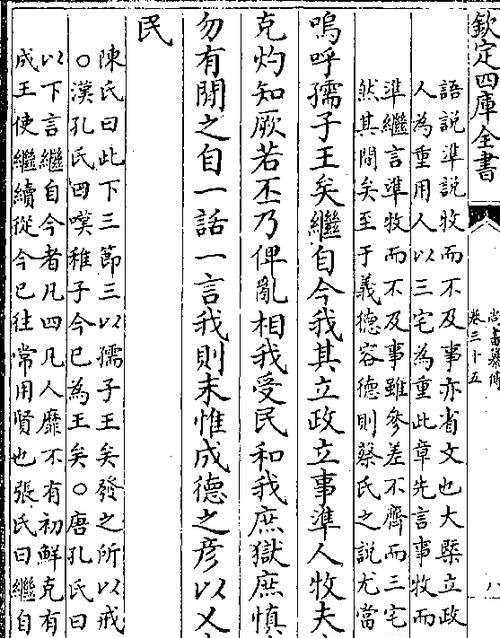 欽定四庫全書
尚書纂傳
卷三十五
語說準說牧而不及事亦省文也大槩立政
人為重用人以三宅為重此章先言事牧而
準繼言準牧而不及事雖參差不齊而三宅
然其間矣至于義德容德則蔡氏之說尤當
嗚呼孺子王矣繼自今我其立政立事準人牧夫
克灼知厥若丕乃俾亂相我受民和我庶獄庶慎
勿有間之自一話一言我則末惟成德之彦以乂
民
陳氏曰此下三節三以孺子王矣發之所以戒
○漢孔氏曰嘆稚子今已為王矣○唐孔氏曰
以下言繼自今者凡四凡人靡不有初鮮克有
成王使繼續從今已往常用賢也張氏曰繼自